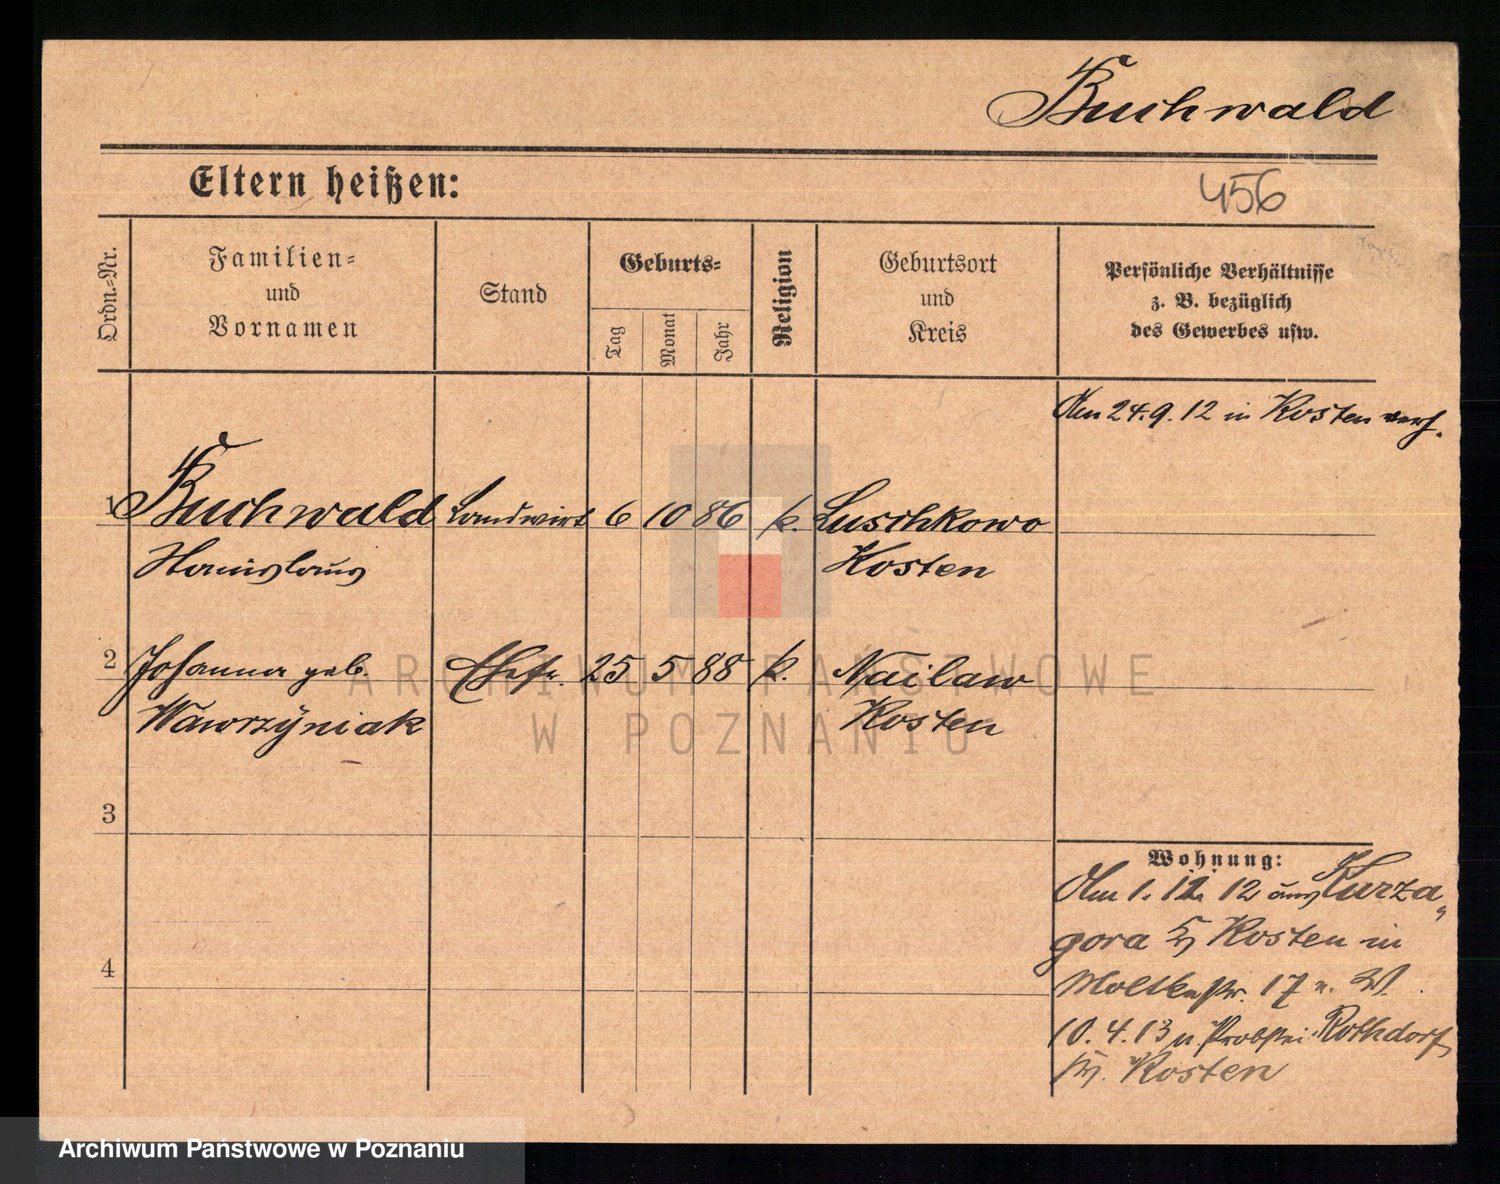 Buchwald
Eltern heißen:
456
Ordn.=Nr.
Familien=
und
Vornamen
Stand
Geburts=
Tag
Monat
Jahr
Religion
Geburtsort
und
Kreis
Persönliche Verhältnisse
z. B. bezüglich
des Gewerbes usw.
Am 24.9.12 in Kosten verh.
1 Buchwald Landwirt 6 10 86 k. Luschkowo
Stanislaus Kosten
2 Johanna geb. Ehefr. 25 5 88 k. Nailaw
Wawrzyniak Kosten
3
4
Wohnung:
Am 1. 12. 12 aus Kurza
gora Kosten in
Moltkestr. 17 n. W.
10. 4. 13 n. Probstei Rothdorf
Kr. Kosten
ARCHIWUM PAŃSTWOWE
W POZNANIU
Archiwum Państwowe w Poznaniu